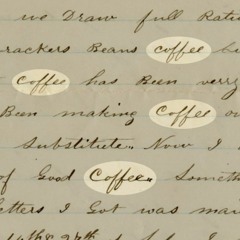 we Draw full Rati
rackers Beans coffee be
coffee has Been verry
Been making Coffee ou
Substitute. Now I
of Good Coffee. Someth
etters I Got was mar